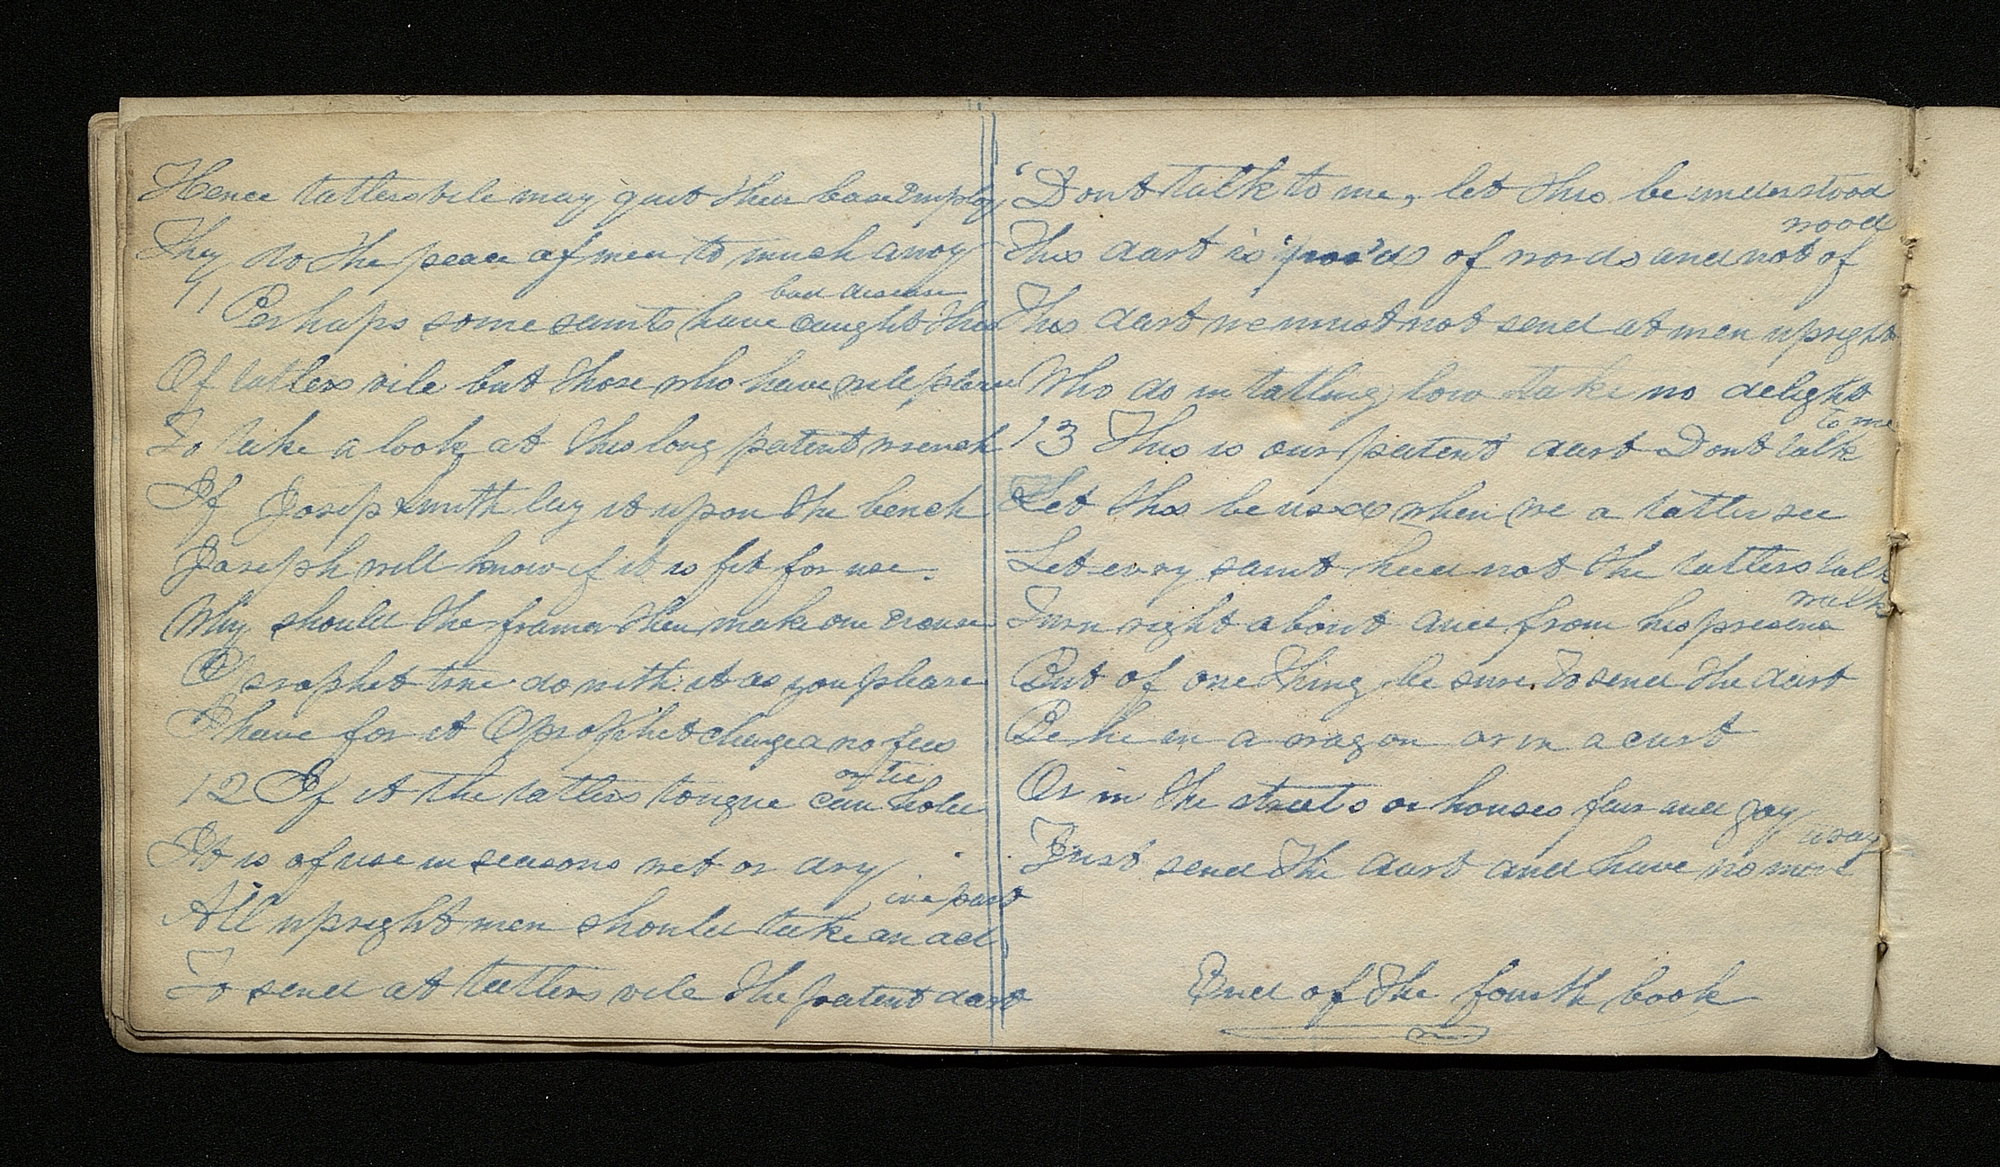 Hence tatlers vile may quit their base Employ
They do the peace of men to much anoy
11 Perhaps some saints have caught this bad disease
Of tatlers vile but those who have will please
To take a look at this long patent wrench
If Josep Smith lay it upon the bench
Joseph will know if it is fit for use.
Why should the framer then make one excuse
O prophet true do with it as you please
I have for it O prophet charged no fees
12 If it the tatlers tongue can hold or tie
It is of use in seasons wet or dry
All upright men should take an active part
To send at tatlers vile the patent dart
'Dont talk to me, let this be understood
This dart is of words and not of wood
This dart we must not send at men upright
Who do in tatling low take no delight
13 This is our patent dart Dont talk to me
Let this be used when we a tatler see
Let evry saint heed not the tatlers talk
Turn right about and from his presence walk
But of one thing be sure to send the dart
Be he in a wagon or in a cart
Or in the streets or houses fair and gay
Just send the dart and have no more
End of the fourth book